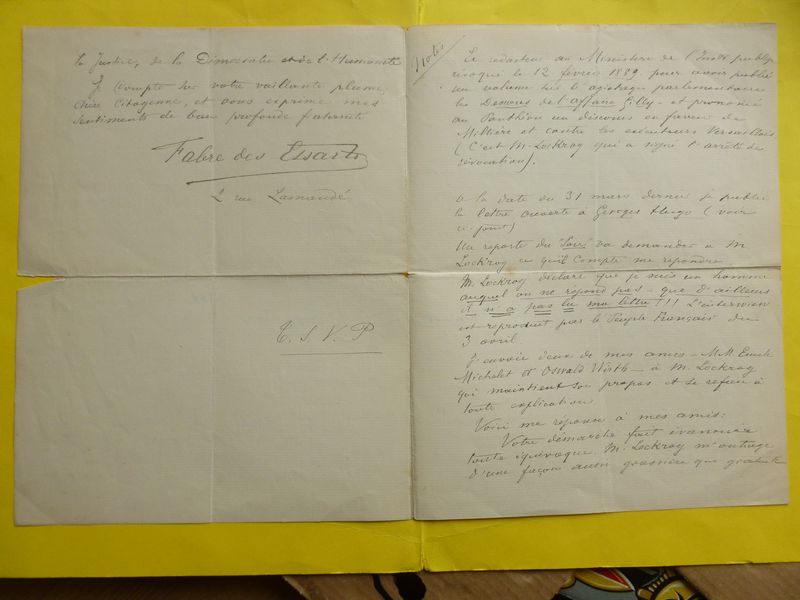 la Justice, de la Démocratie et de l'Humanité
Je compte sur votre vaillante plume,
chère Citoyenne, et vous exprime mes
sentiments de bien profonde fraternité
Fabre des Essarts
2 rue Lamandé
T. S. V. P
Notes
Le rédacteur au Ministère de l'Inst publiq
révoqué le 12 février 1889 pour avoir publié
un volume sur l'agiotage parlementaire
les Dessous de l'affaire Gilly - et prononcé
au Panthéon un discours en faveur de
Millière et contre les exécuteurs Versaillais
(C'est M. Lockroy qui a signé l'arrêté de
révocation).
A la date du 31 mars dernier je publie
la lettre ouverte à Georges Hugo (voir
ci-joint)
Un reporter du "Soir" va demander à M
Lockroy ce qu'il compte me répondre
M. Lockroy déclare que je suis un homme
auquel on ne répond pas - que d'ailleurs
il n'a pas lu ma lettre!!! L'interview
est reproduit par le Peuple Français du
3 avril
J'envoie deux de mes amis - MM Emile
Michelet et Oswald Wirth - à M. Lockroy
qui maintient son propos et se refuse à
toute explication
Voici ma réponse à mes amis:
Votre démarche fait évanouir
toute équivoque. M. Lockroy m'outrage
d'une façon aussi grossière que gratuite